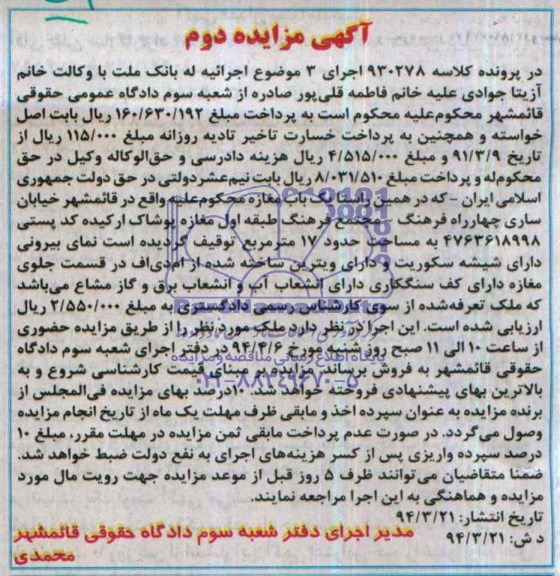 آگهی مزایده دوم
در پرونده کلاسه ۹۳۰۲۷۸ اجرای ۳ موضوع اجرائیه له بانک ملت با وکالت خانم
آزیتا جوادی علیه خانم فاطمه قلی‌پور صادره از شعبه سوم دادگاه عمومی حقوقی
قائمشهر محکوم‌علیه محکوم است به پرداخت مبلغ ۱۶۰/۶۳۰/۱۹۲ ریال بابت اصل
خواسته و همچنین به پرداخت خسارت تاخیر تادیه روزانه مبلغ ۱۱۵/۰۰۰ ریال از
تاریخ ۹۱/۳/۹ و مبلغ ۴/۵۱۵/۰۰۰ ریال هزینه دادرسی و حق‌الوکاله وکیل در حق
محکوم‌له و پرداخت مبلغ ۸/۰۳۱/۵۱۰ ریال بابت نیم‌عشردولتی در حق دولت جمهوری
اسلامی ایران - که در همین راستا یک باب مغازه محکوم‌علیه واقع در قائمشهر خیابان
ساری چهارراه فرهنگ - مجتمع فرهنگ طبقه اول مغازه پوشاک ارکیده کد پستی
۴۷۶۳۶۱۸۹۹۸ به مساحت حدود ۱۷ مترمربع توقیف گردیده است نمای بیرونی
دارای شیشه سکوریت و دارای ویترین ساخته شده از ام‌دی‌اف در قسمت جلوی
مغازه دارای کف سنگکاری دارای انشعاب آب و انشعاب برق و گاز مشاع می‌باشد
که ملک تعرفه‌شده از سوی کارشناس رسمی دادگستری به مبلغ ۲/۵۵۰/۰۰۰ ریال
ارزیابی شده است. این اجرا در نظر دارد ملک مورد نظر را از طریق مزایده حضوری
از ساعت ۱۰ الی ۱۱ صبح روز شنبه مورخ ۹۴/۴/۶ در دفتر اجرای شعبه سوم دادگاه
حقوقی قائمشهر به فروش برساند. مزایده بر مبنای قیمت کارشناسی شروع و به
بالاترین بهای پیشنهادی فروخته خواهد شد. ۱۰درصد بهای مزایده فی‌المجلس از
برنده مزایده به عنوان سپرده اخذ و مابقی ظرف مهلت یک ماه از تاریخ انجام مزایده
وصول می‌گردد. در صورت عدم پرداخت مابقی ثمن مزایده در مهلت مقرر، مبلغ ۱۰
درصد سپرده واریزی پس از کسر هزینه‌های اجرای به نفع دولت ضبط خواهد شد.
ضمنا متقاضیان می‌توانند ظرف ۵ روز قبل از موعد مزایده جهت رویت مال مورد
مزایده و هماهنگی به این اجرا مراجعه نمایند.
تاریخ انتشار: ۹۴/۳/۲۱
د ش: ۹۴/۳/۲۱
مدیر اجرای دفتر شعبه سوم دادگاه حقوقی قائمشهر
محمدی
پایگاه اطلاع رسانی مناقصه و مزایده
۰۲۱-۸۸۳۴۹۶۷۰-۵